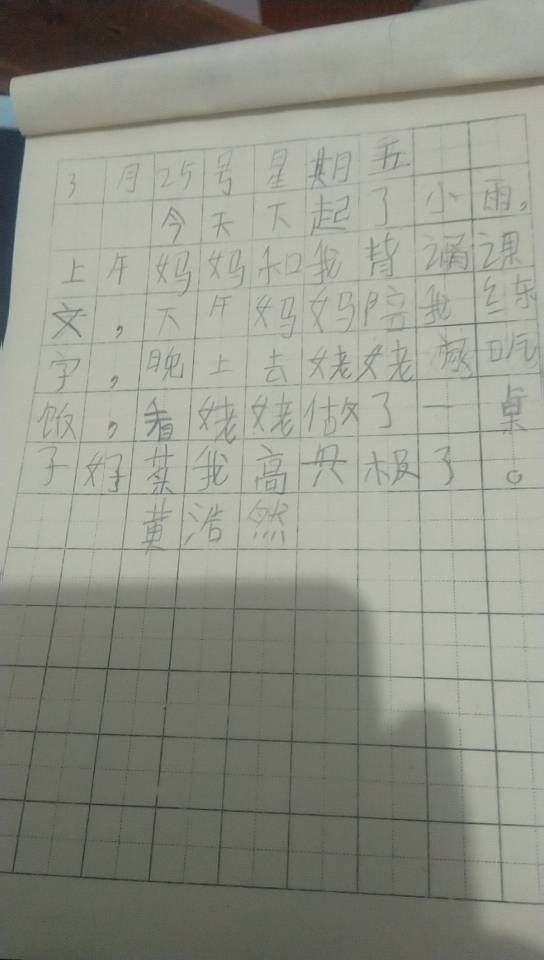 3月25号星期五
今天下起了小雨,
上午妈妈和我背诵课
文,下午妈妈陪我练
字,晚上去姥姥家吃
饭,看姥姥做了一桌
子好菜我高兴极了。
黄浩然